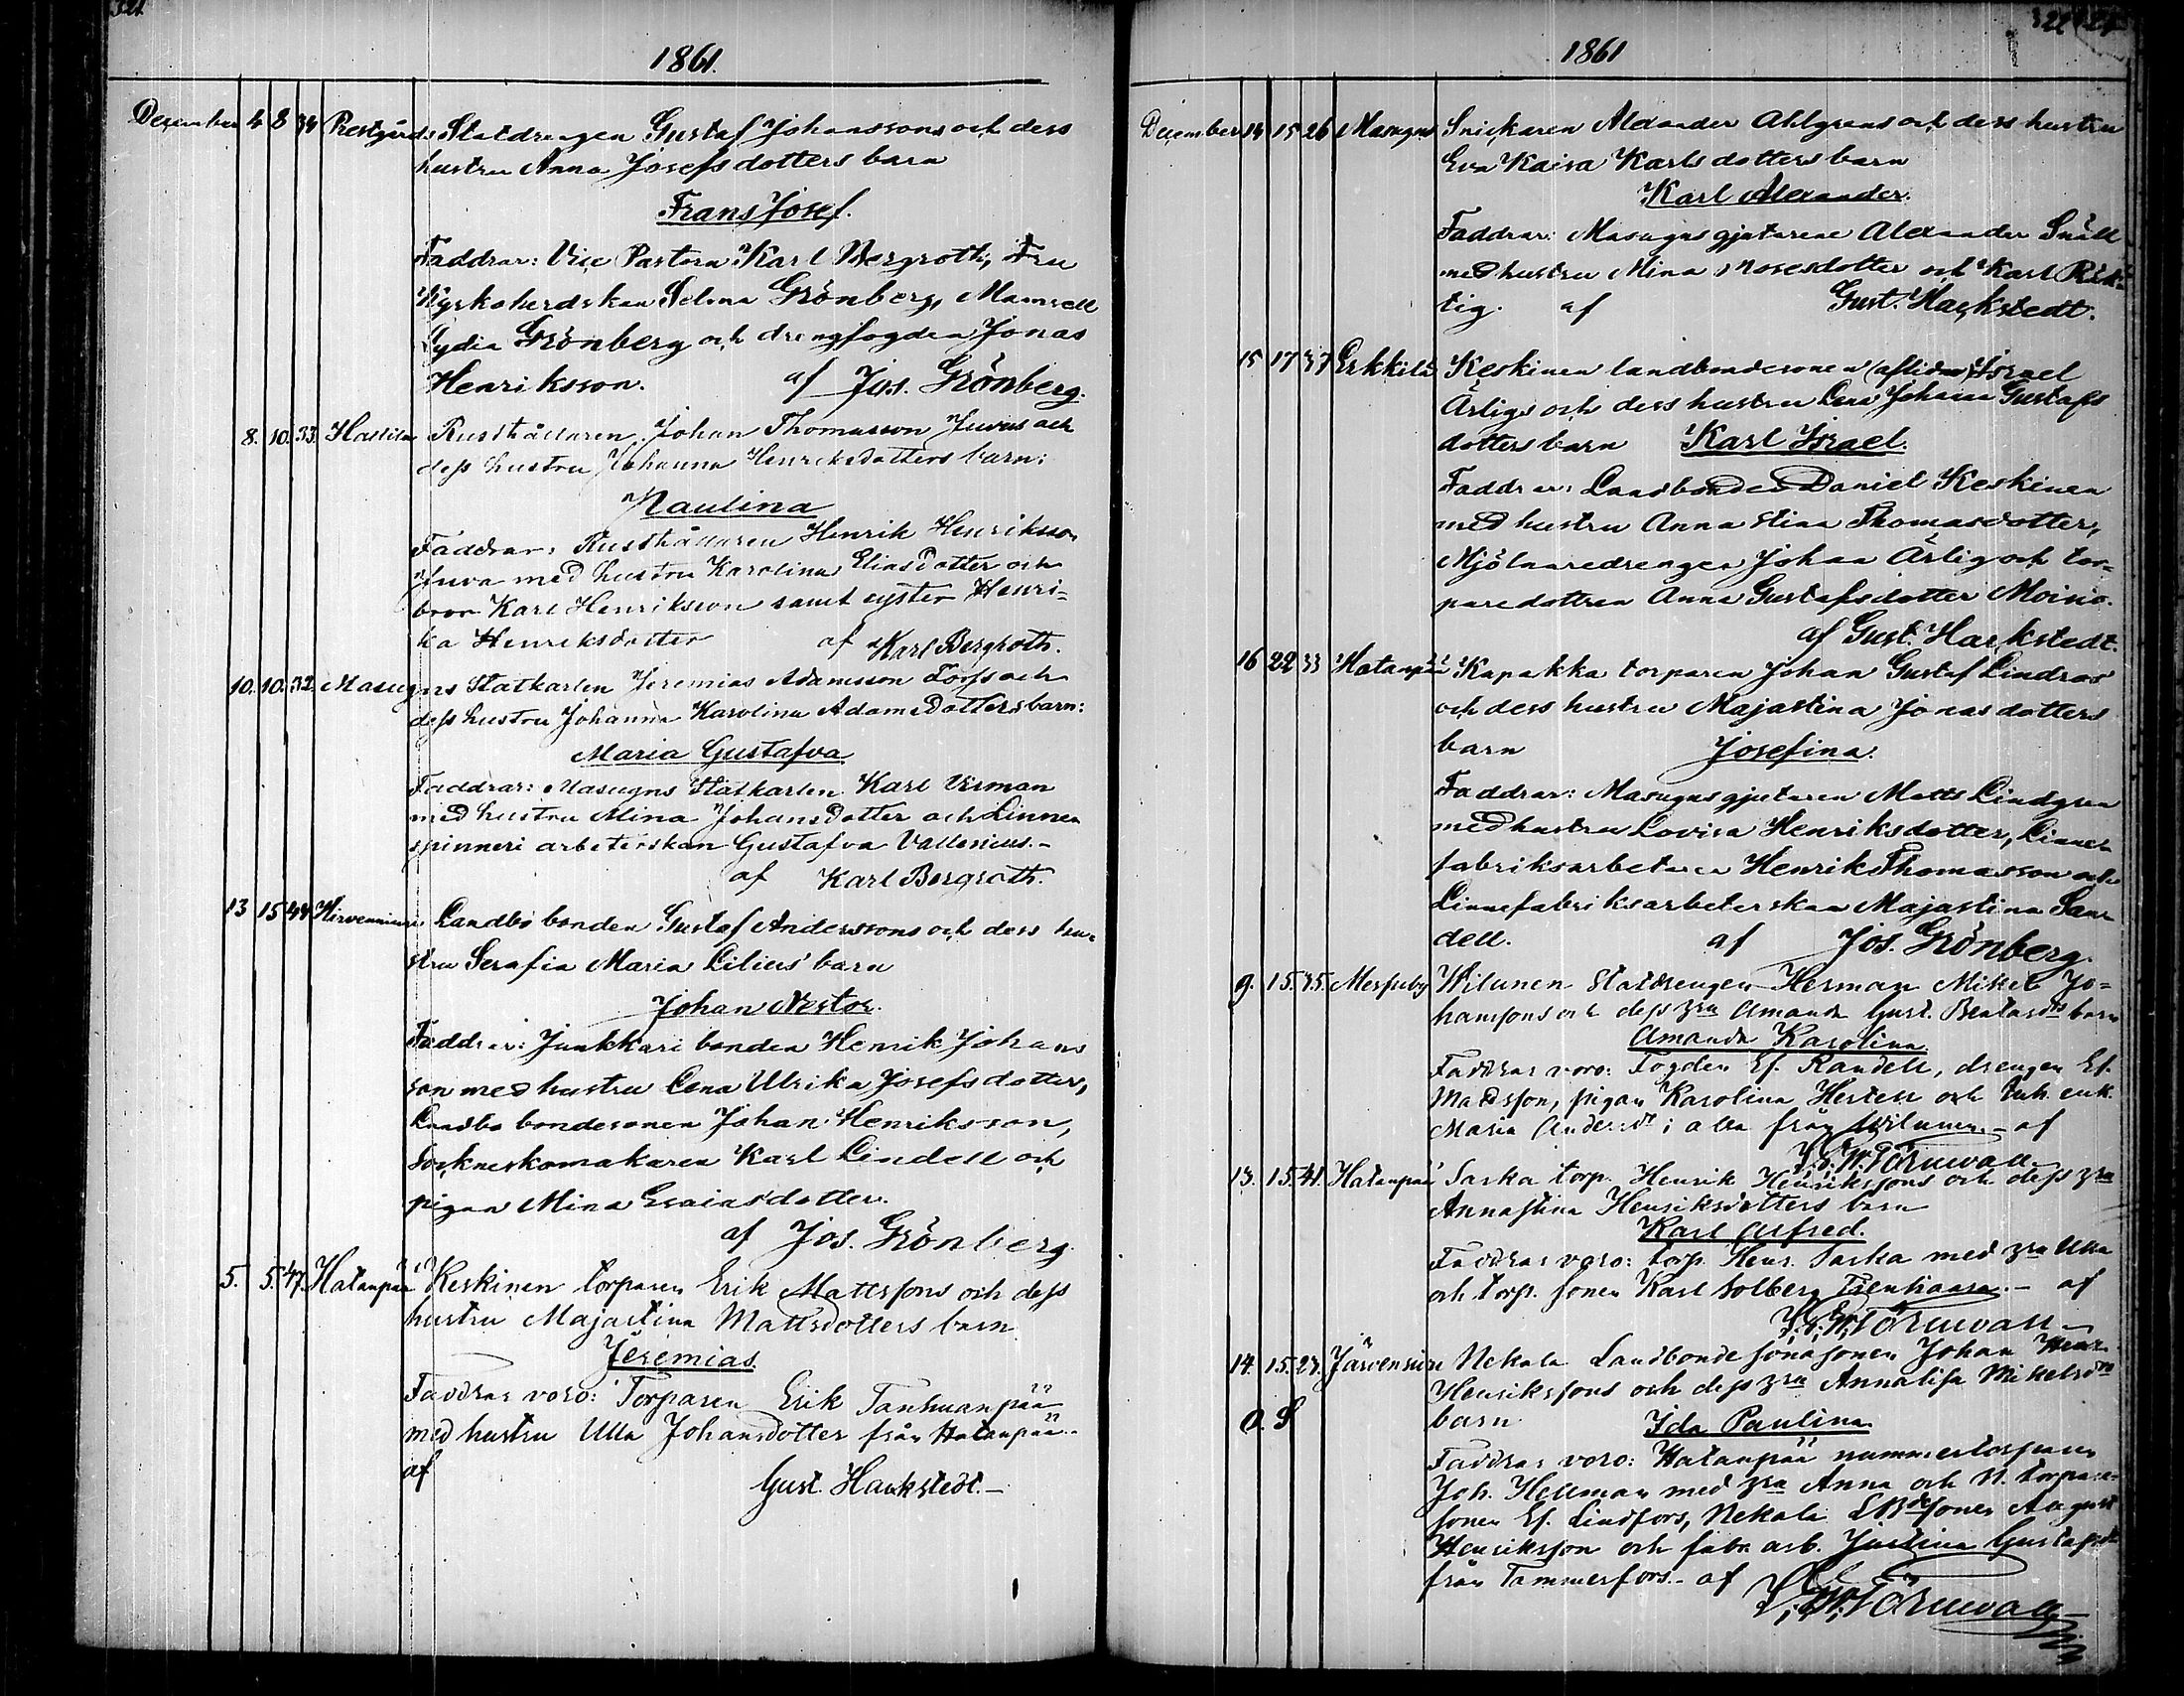 1861.
December 4 8 34 Prestgårds Statdrengen Gustaf Johanssons och dess
hustru Anna Josefsdotters barn
Frans Josef.
Faddrar: Vice Pastorn Karl Bergroth, Fru
Kyrkoherdskan Selma Grönberg, Mamsell
Lydia Grönberg och drengfogden Jonas
Henriksson. af Jos. Grönberg.
8. 10. 33. Hatila Rusthållaren Johan Thomasson Juvas och
dess hustru Johanna Henriksdotters barn:
Paulina
Faddrar: Rusthållaren Henrik Henriksson
Juva med hustru Karolina Eliasdotter och
bror Karl Henriksson samt syster Henri=
ka Henriksdotter af Karl Bergroth.
10. 10. 32. Masugns Statkarlen Jeremias Adamsson Forss och
dess hustru Johanna Karolina Adamsdotters barn:
Maria Gustafva
Faddrar: Masugns Statkarlen Karl Virman
med hustru Mina Johansdotter och Linne
spinneri arbeterskan Gustafva Vallenius.-
af Karl Bergroth.
13 15 44 Hirvenniemi Landbo bonden Gustaf Anderssons och dess hu=
stru Serafia Maria Lilius' barn
Johan Nestor.
Faddrar: Junkkari bonden Henrik Johans
son med hustru Lena Ulrika Josefsdotter,
Landbo bondesonen Johan Henriksson,
Sockneskomakaren Karl Lindell och
pigan Mina Esaiasdotter.
af Jos. Grönberg
5. 5. 47. Hatanpää Keskinen torparen Erik Mattssons och dess
hustru Majastina Mattsdotters barn
Jeremias.
Faddrar voro: Torparen Erik Tanhuanpää
med hustru Ulla Johansdotter från Hatanpää.-
af
Gust. Hackstedt.-
1861
December 14 15 26 Masugns Snickaren Alexander Ahlgrens och dess hustru
Eva Kaisa Karlsdotters barn
Karl Alexander.
Faddrar: Masugnsgjutaren Alexander Snäll
med hustru Mina Mosesdotter och Karl Rik=
tig. af Gust. Hackstedt.
15 17 37 Erkkilä Keskinen landbondesonen (aflidne) Israel
Ärligs och dess hustru Lena Johanna Gustafs
dotters barn Karl Israel.
Faddrar: Landbonden Daniel Keskinen
med hustru Anna Stina Thomasdotter,
Mjölnaredrengen Johan Ärlig och tor=
paredottren Anna Gustafsdotter Moisio.
af Gust. Hackstedt.
16 22 33 Hatanpää Kapakka torparen Johan Gustaf Lindros'
och dess hustru Majastina Jonasdotters
barn Josefina.
Faddrar: Masugnsgjutaren Matts Lindgren
med hustru Lovisa Henriksdotter, Linne
fabriksarbetaren Henrik Thomasson och
Linnefabriksarbeterskan Majastina San
dell. af Jos. Grönberg.
9. 15. 35. Messuby Wilunen Statdrengen Herman Mikel Jo=
hanssons och dess hru Amanda Gust. barn
Amanda Karolina
Faddrar voro: Fogden Ef. Randell, drengen Ef.
Madsson, pigan Karolina Hertell och Inh. enk.
Maria Andersdr; alla från Wilunen.- af
Törnwall
13. 15. 41. Hatanpää Sarka torp. Henrik Henrikssons och dess hru
Annastina Henriksdotters barn
Karl Alfred.
Faddrar voro: torp. Henr. Sarka med hru Ulla
och torp. sonen Karl Solberg.- af
Törnwall
14. 15. 27. Järvensivu Nekala Landbonde sonasonen Johan Henr.
Henrikssons och dess hru Annalisa Mikelsdrs
O. S barn Ida Paulina
Faddrar voro: Hatanpää nummertorparen
Joh. Hellman med hru Anna och N. torpare=
sonen Ef. Lindfors, Nekala LBdesonen August
Henriksson och fabr. arb. Justina Gustafsdr
från Tammerfors.- af
Törnwall